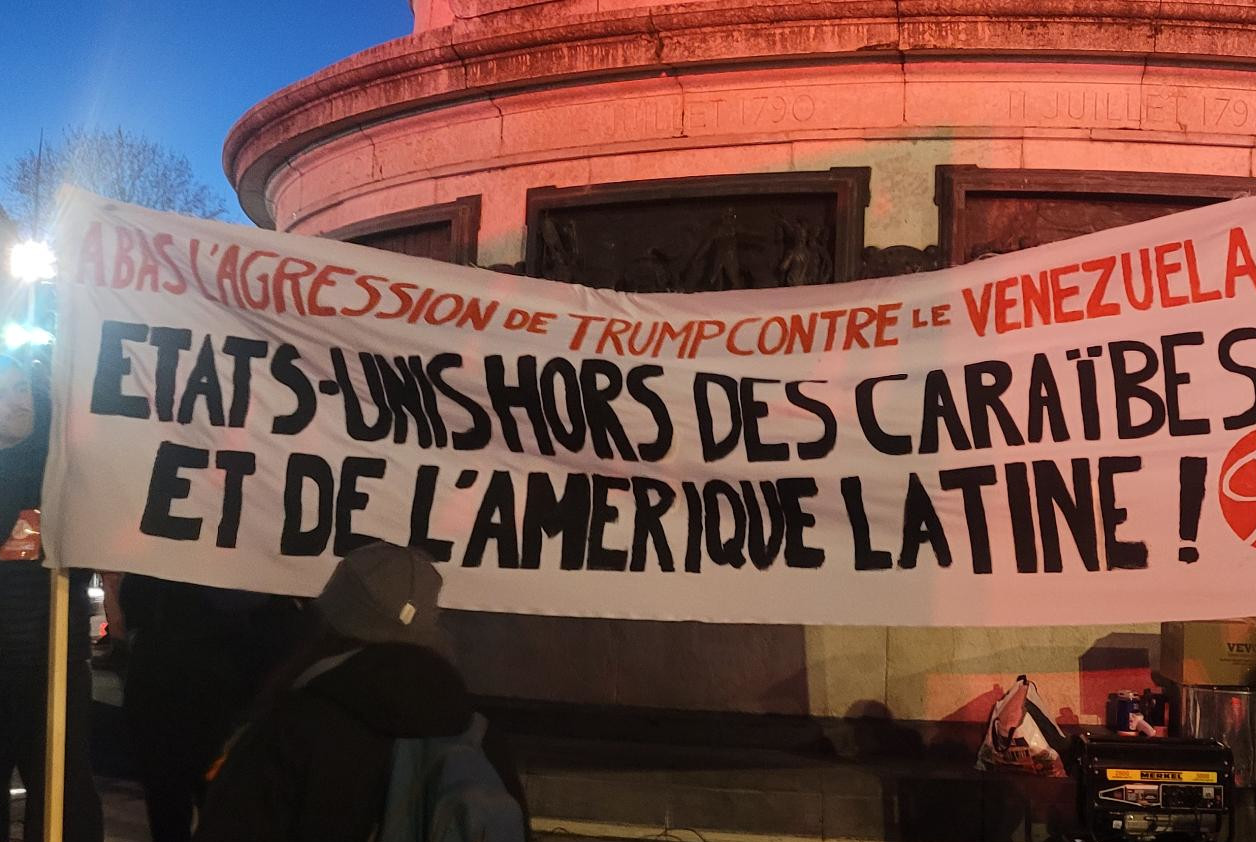 JUILLET 1790
11 JUILLET 179
A BAS L'AGRESSION DE TRUMP CONTRE LE VENEZUELA
ETATS-UNIS HORS DES CARAÏBES
ET DE L'AMERIQUE LATINE !
VEV
MERKEL